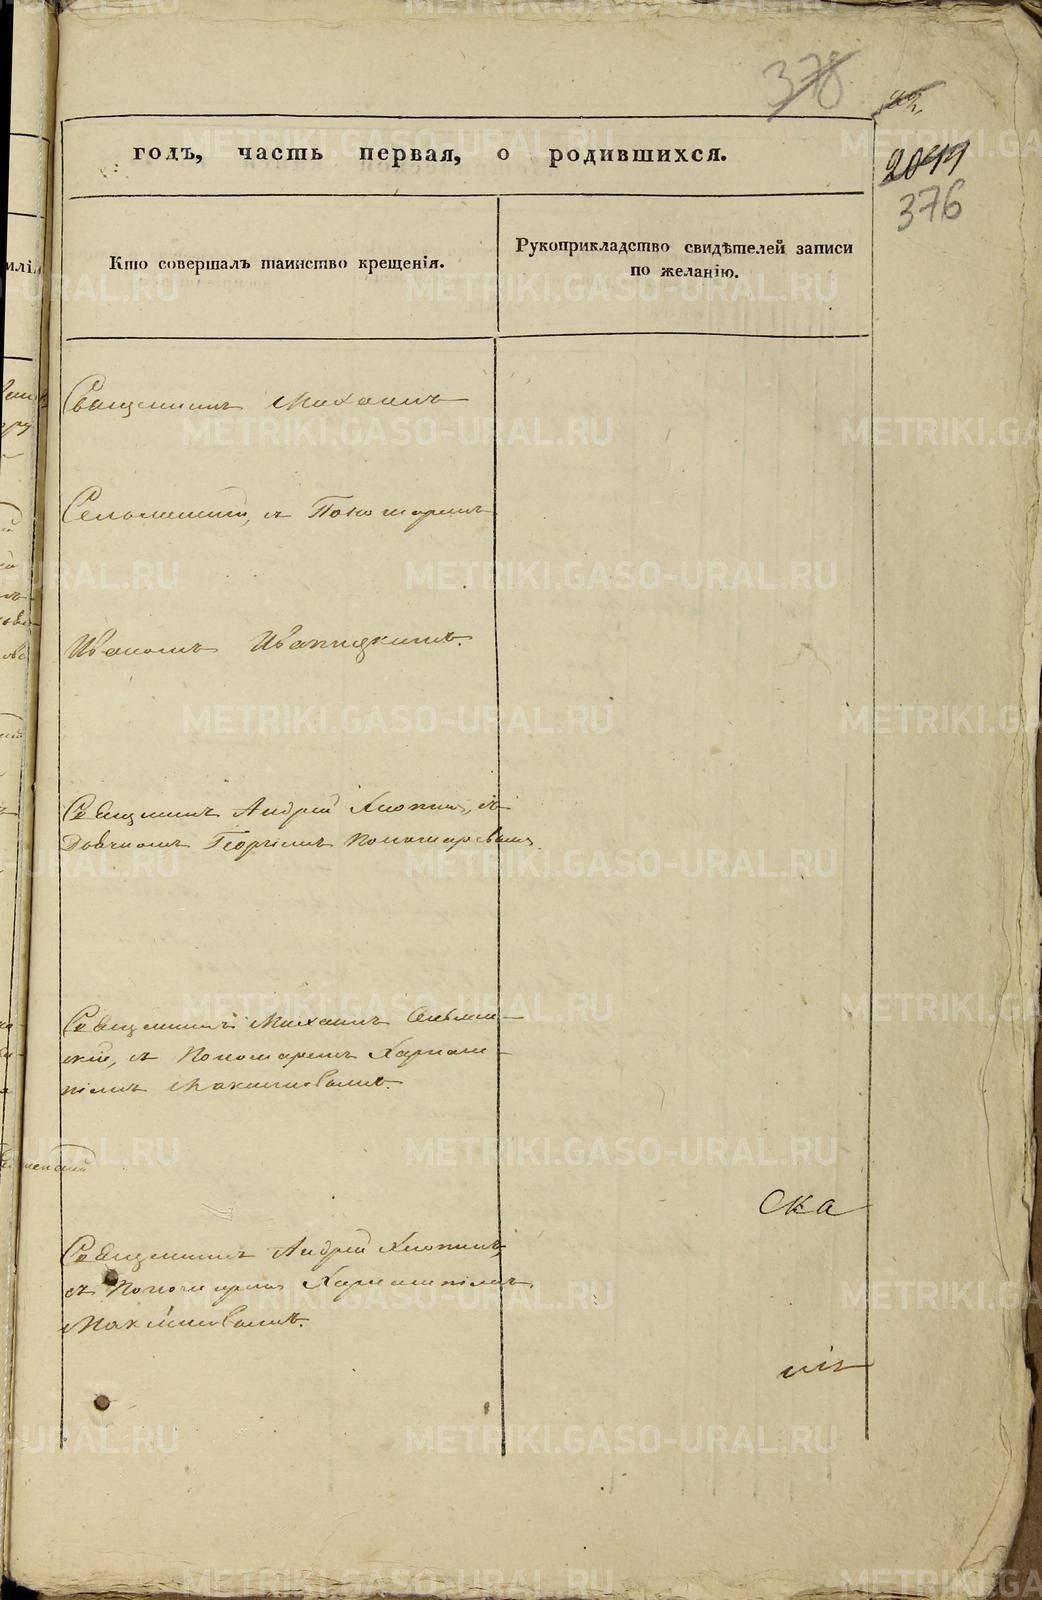 378
22.
годъ, часть первая, о родившихся.
2044
376
Кто совершалъ таинство крещенія.
Рукоприкладство свидѣтелей записи
по желанію.
Священникъ Михаилъ
и Пономаремъ
Иваномъ Иваницкимъ.
Священникъ Андрей Хлопинъ, съ
Дьячкомъ Георгіемъ Пономаревымъ.
Священникъ Михаилъ
скій, съ Пономаремъ Харлам-
піемъ Максимовымъ.
Священникъ Андрей Хлопинъ,
съ Пономаремъ Харлампіемъ
Максимовымъ.
ска
METRIKI.GASO-URAL.RU